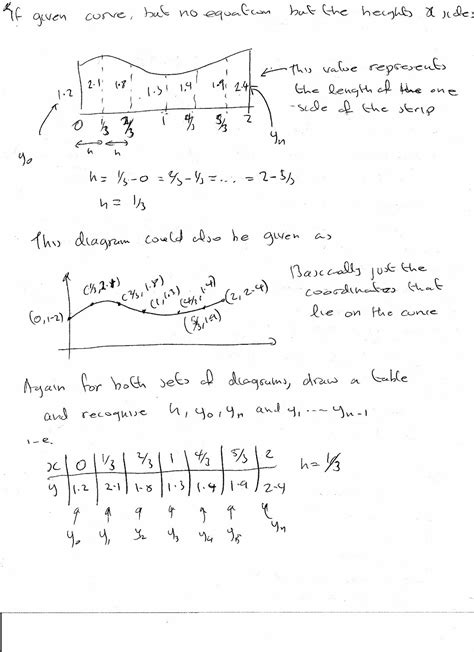 If given curve, but no equation but the heights & sides
1.2 2.1 1.8 1.3 1.4 1.9 2.4
0 1/3 2/3 1 4/3 5/3 2
h h
y₀
yₙ
← This value represents
the length of the one
side of the strip
h = 1/3 - 0 = 2/3 - 1/3 = .... = 2 - 5/3
h = 1/3
This diagram could also be given as
(0,1.2) (2/3, 1.8) (1,1.3) (4/3, 1.4) (5/3, 1.9) (2, 2.4)
Basically just the
coordinates that
lie on the curve
Again for both sets of diagrams, draw a table
and recognise h, y₀, yₙ and y₁ .... yₙ₋₁
i-e.
x 0 1/3 2/3 1 4/3 5/3 2
h = 1/3
y 1.2 2.1 1.8 1.3 1.4 1.9 2.4
y₀ y₁ y₂ y₃ y₄ y₅ yₙ